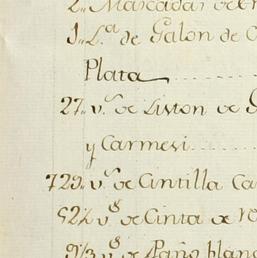 2.. Mascadas de
1.. L.ª de Galon de O
Plata
27.. v.s de Liston de
y Carmesi
729.. v.s de Cintilla Ca
52½ v.s de Cinta de
9⅓ v.s de Paño blan